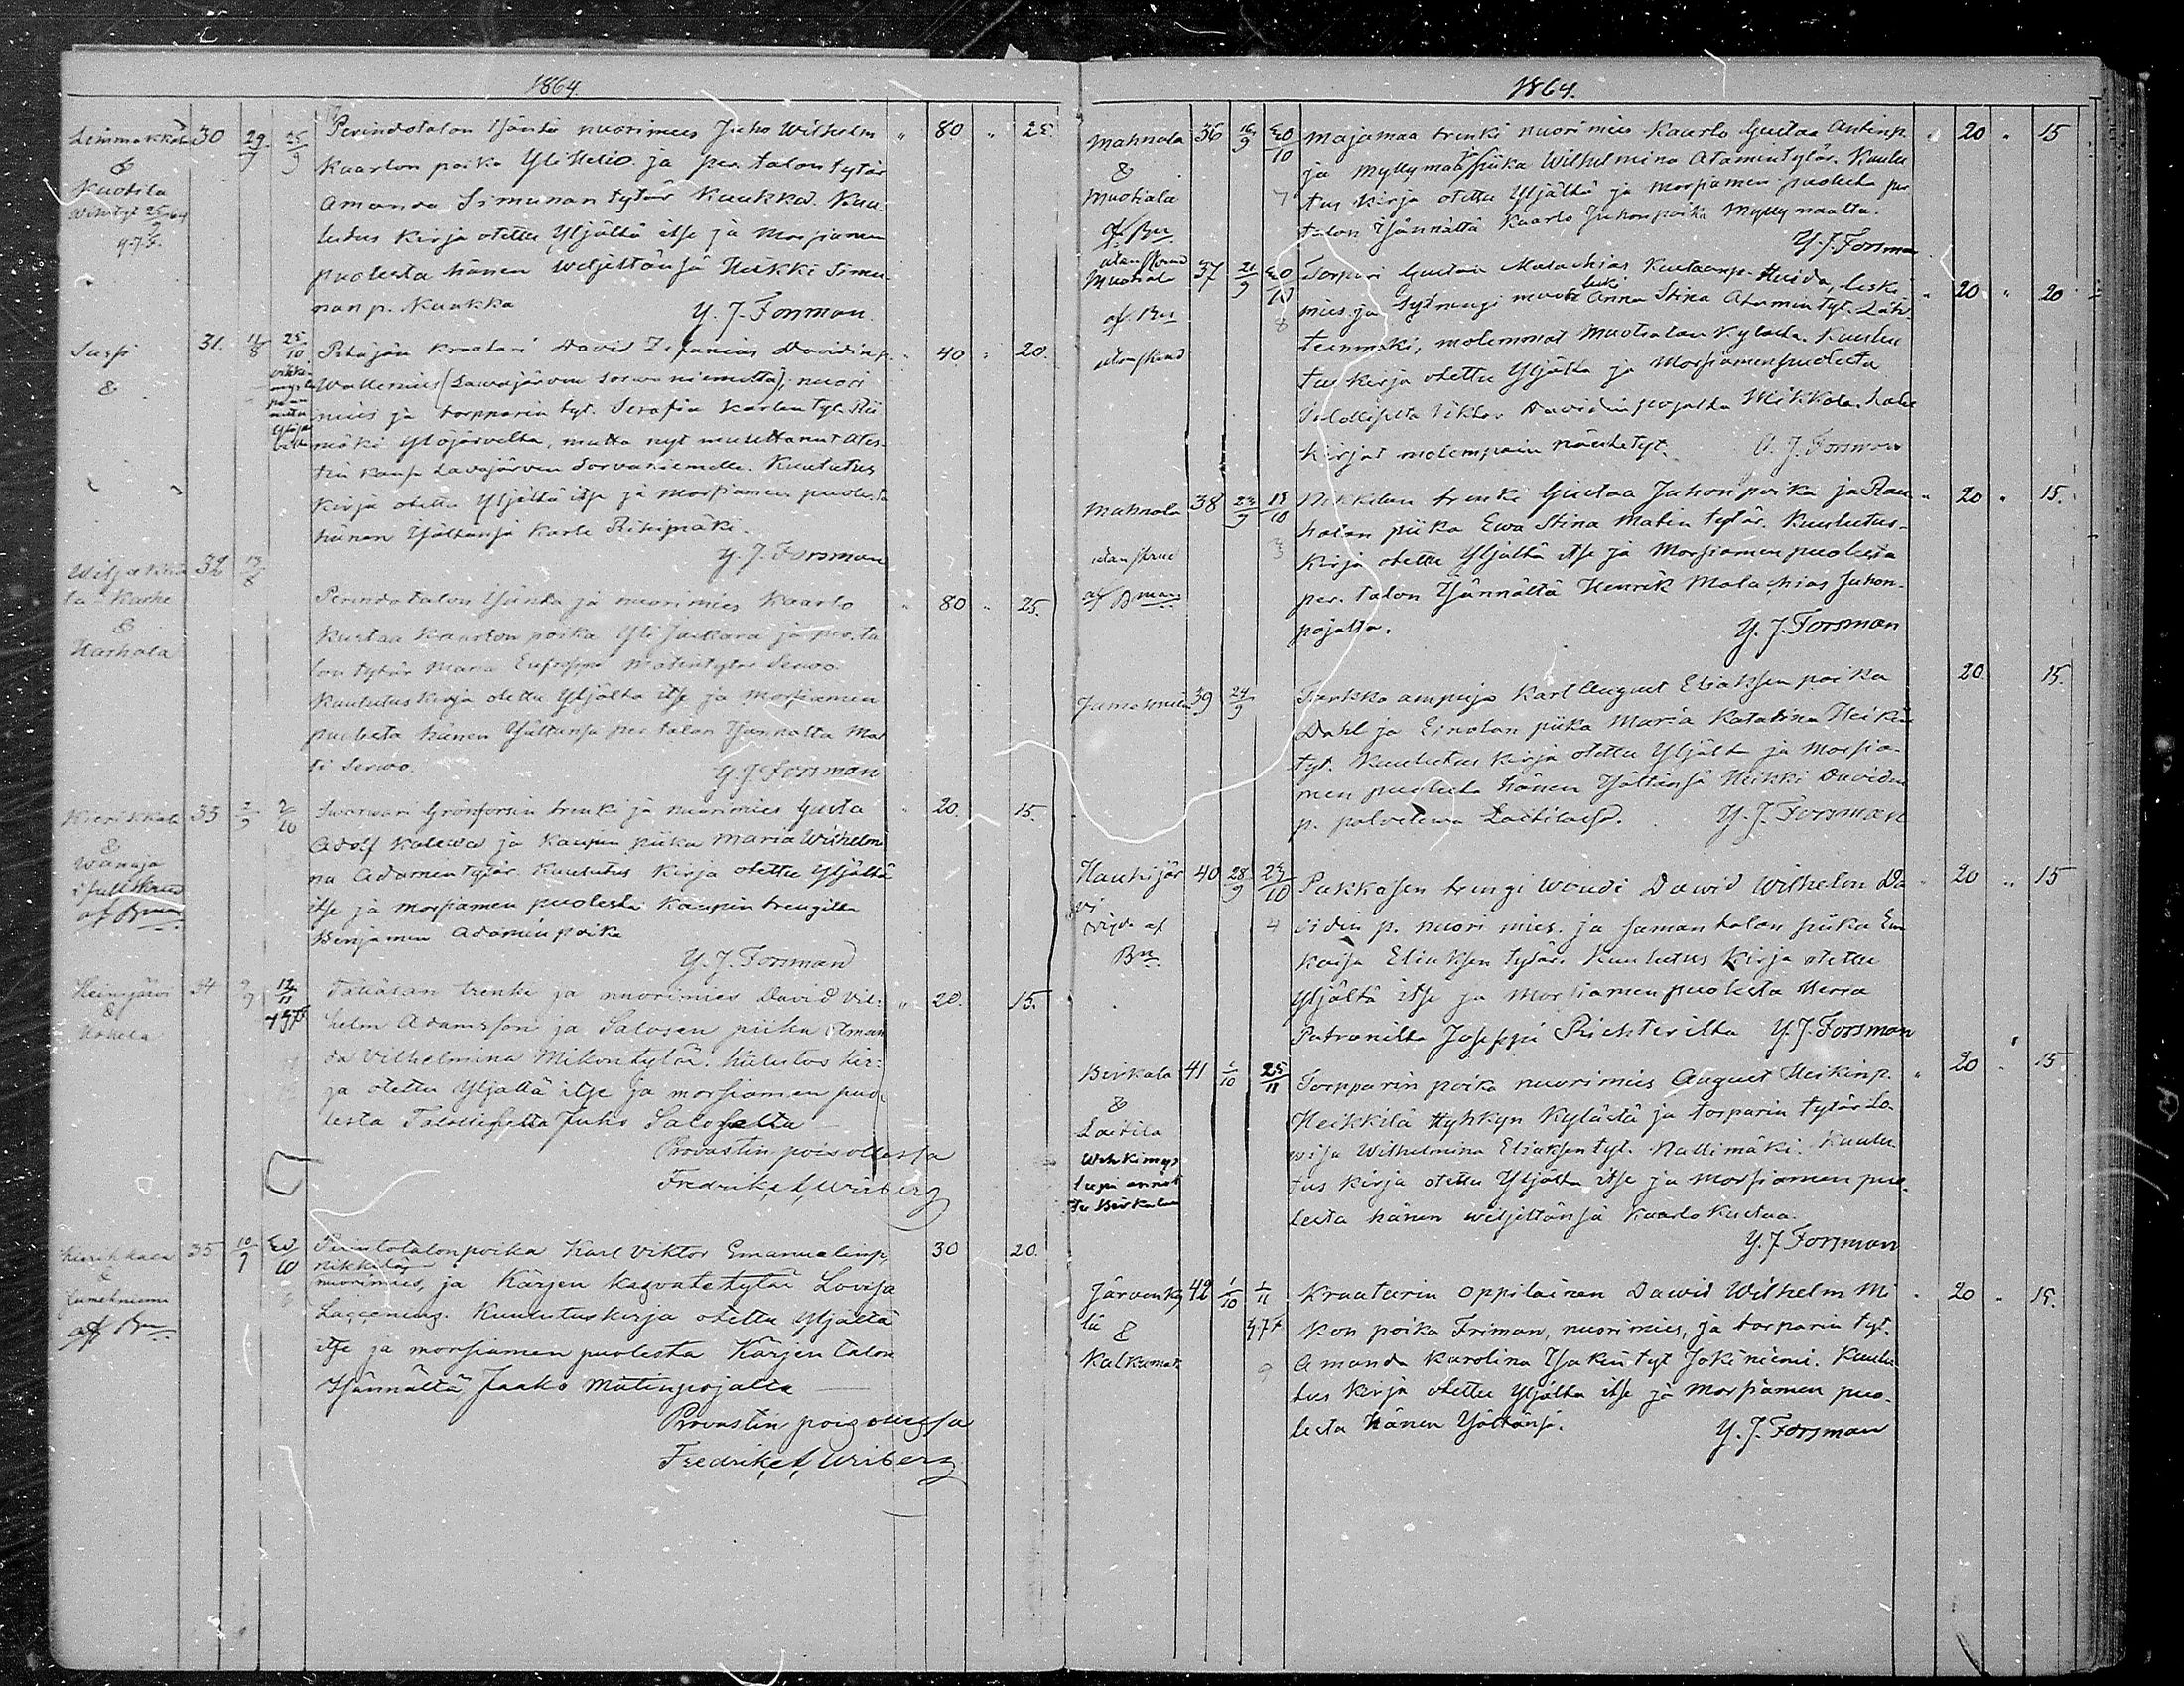 1864.
Lemmakkala 30 29/7 25/9 Perindotalon Isäntä nuorimies Juho Wilhelm " 80 " 25.
& Kaarlon poika Yli Helio ja per. talon tytär
Kuotila Amanda Simunan tytär Kuukka. Kuu-
Wihityt 25/9 64 lutus kirja otettu Yljältä itse ja Morsiamen
Y.J.F. puolesta hänen weljeltänsä Heikki Simu-
nan p. Kuukka Y. J. Forsman.
31. 11/8 25/10 Pitäjän kraatari David Davidinp. " 40 " 20.
& Wallenius (Lavajärven Sorvaniemeltä), nuori
mies ja torpparin tyt. Serafia Karlen tyt. Rii
mäki Ylöjärvelta, mutta nyt muuttanut Ates-
tin kansa Lavajärven Sorvaniemelle. Kuulutus
kirja otettu Yljältä itse ja morsiamen puolesta
hänen Isältänsä Karle Riihimäki.
Y. J. Forsman
32 13/8
Karhe Perindotalon Isäntä ja nuorimies Kaarlo " 80 " 25.
& Kustaa Kaarlon poika Yli ja per. ta
Harhala lon tytär Maria Matintytär Serwo.
Kuulutus kirja otettu Yljältä itse ja morsiamen
puolesta hänen Isältänsä per talon Isännältä Mat
ti Serwo. Y. J. Forsman
Kierikkala 33 2/9 2/10 Grönforsin trenki ja nuorimies Gusta " 20. 15.
& Adolf Kalewa ja Kaupin piika Maria Wilhelmi
na Adamentytär. Kuulutus kirja otettu Yljältä
itse ja morsiamen puolesta Kaupin trengiltä
Benjamin Adamin poika
Y. J. Forsman
Heinijärvi 34 9/9 12/11 trenki ja nuorimies David Vil- " 20. 15.
& YJF helm Adamsson ja Salosen piika Aman
da Vilhelmina Mikontytär. Kulutos kir-
ja otettu Yljältä itse ja morsiamen puo
lesta Talolliselta Juho Saloselta
Provastin poisollessa
Fredrik Wiberg
35 10/9 20/10 Perintotalonpoika Karl Viktor Emanuelinp. 30 20.
& Nikkila
nuorimies, ja Kärjen kasvatetytär Lovisa
af Bn Kuulutuskirja otettu Yljältä
itse ja morsiamen puolesta Kärjen talon
Isännältä Jaako Matinpojalta
Provastin poisollessa
Fredrik Wiberg
1864.
Mahnala 36 16/9 30/10 Majamaa trenki nuorimies Kaarlo Gustaa Antinp. " 20 " 15
& ja Myllymaa piika Wilhelmina Atamintytär. Kuulu
Muotiala 7 tus kirja otettu Yljältä ja morsiamen puolesta per
af Bn talon Isännältä Kaarlo Juhonpoika Myllymaalta.
Y. J. Forsman
37 21/9 30/10 Torpari Gustaa Malachias Kustaanp. Heida, leski " 20 " 20
af Bn 8 mies ja leski Anna Stina Atamin tyt. Läh-
teenmäki, molemmat Muotialan kylästä. Kuulu
tus kirja otettu Yljältä ja Morsiamen puolesta
Talolliselta Viktor Davidinpojalta Mikkola.
kirjat molempain näytetyt. A. J. Forsman
Mahnala 38 23/9 13/10 Nikkilän trenki Gustaa Juhon poika ja Rau " 20 " 15.
3 halan piika Ewa Stina Matin tytär. Kuulutus-
kirja otettu Yljältä itse ja Morsiamen puolesta
per. talon Isännältä Henrik Malachias Juhon-
pojalta. Y. J. Forsman
39 24/9 Tarkka ampuja Karl August Eliaksen poika 20. 15.
Dahl ja Einolan piika Maria Katarina Heikin
tyt. Kuulutus kirja otettu Yljältä ja Morsia-
men puolesta hänen Isältänsä Heikki Davidin
p. palvelewa Y. J. Forsman
Haukijär 40 28/9 23/10 Pukkasen trengi woudi Dawid Wilhelm Da " 20 " 15
vi 4 vidin p. nuori mies. ja saman talon piika Eu
af Kaisa Eliaksen tytär. Kuulutus kirja otettu
Bn Yljältä itse ja Morsiamen puolesta Herra
Patronilta Joseppi Richterilta Y. J. Forsman
Birkala 41 1/10 25/11 Torpparin poika nuorimies August Heikinp. " 20 " 15
& Heikkilä Hyhkyn kylästä ja torparin tytär Lo
Laitila wisa Wilhelmina Eliaksen tyt. Nallimäki. Kuulu
Wihkimys tus kirja otettu Yljältä itse ja morsiamen puo
lupa annet lesta hänen weljeltänsä Kaarlo Kustaa.
tu Birkalaan Y. J. Forsman
Järvenky 42 1/10 1/11 Kraatarin oppilainen Dawid Wilhelm Mi " 20 " 15.
lä & YJF kon poika Friman, nuorimies, ja torparin tyt.
9 Amanda Karolina Isakin tyt Jokiniemi. Kuulu
tus kirja otettu Yljältä itse ja Morsiamen puo-
lesta hänen Isältänsä. Y. J. Forsman